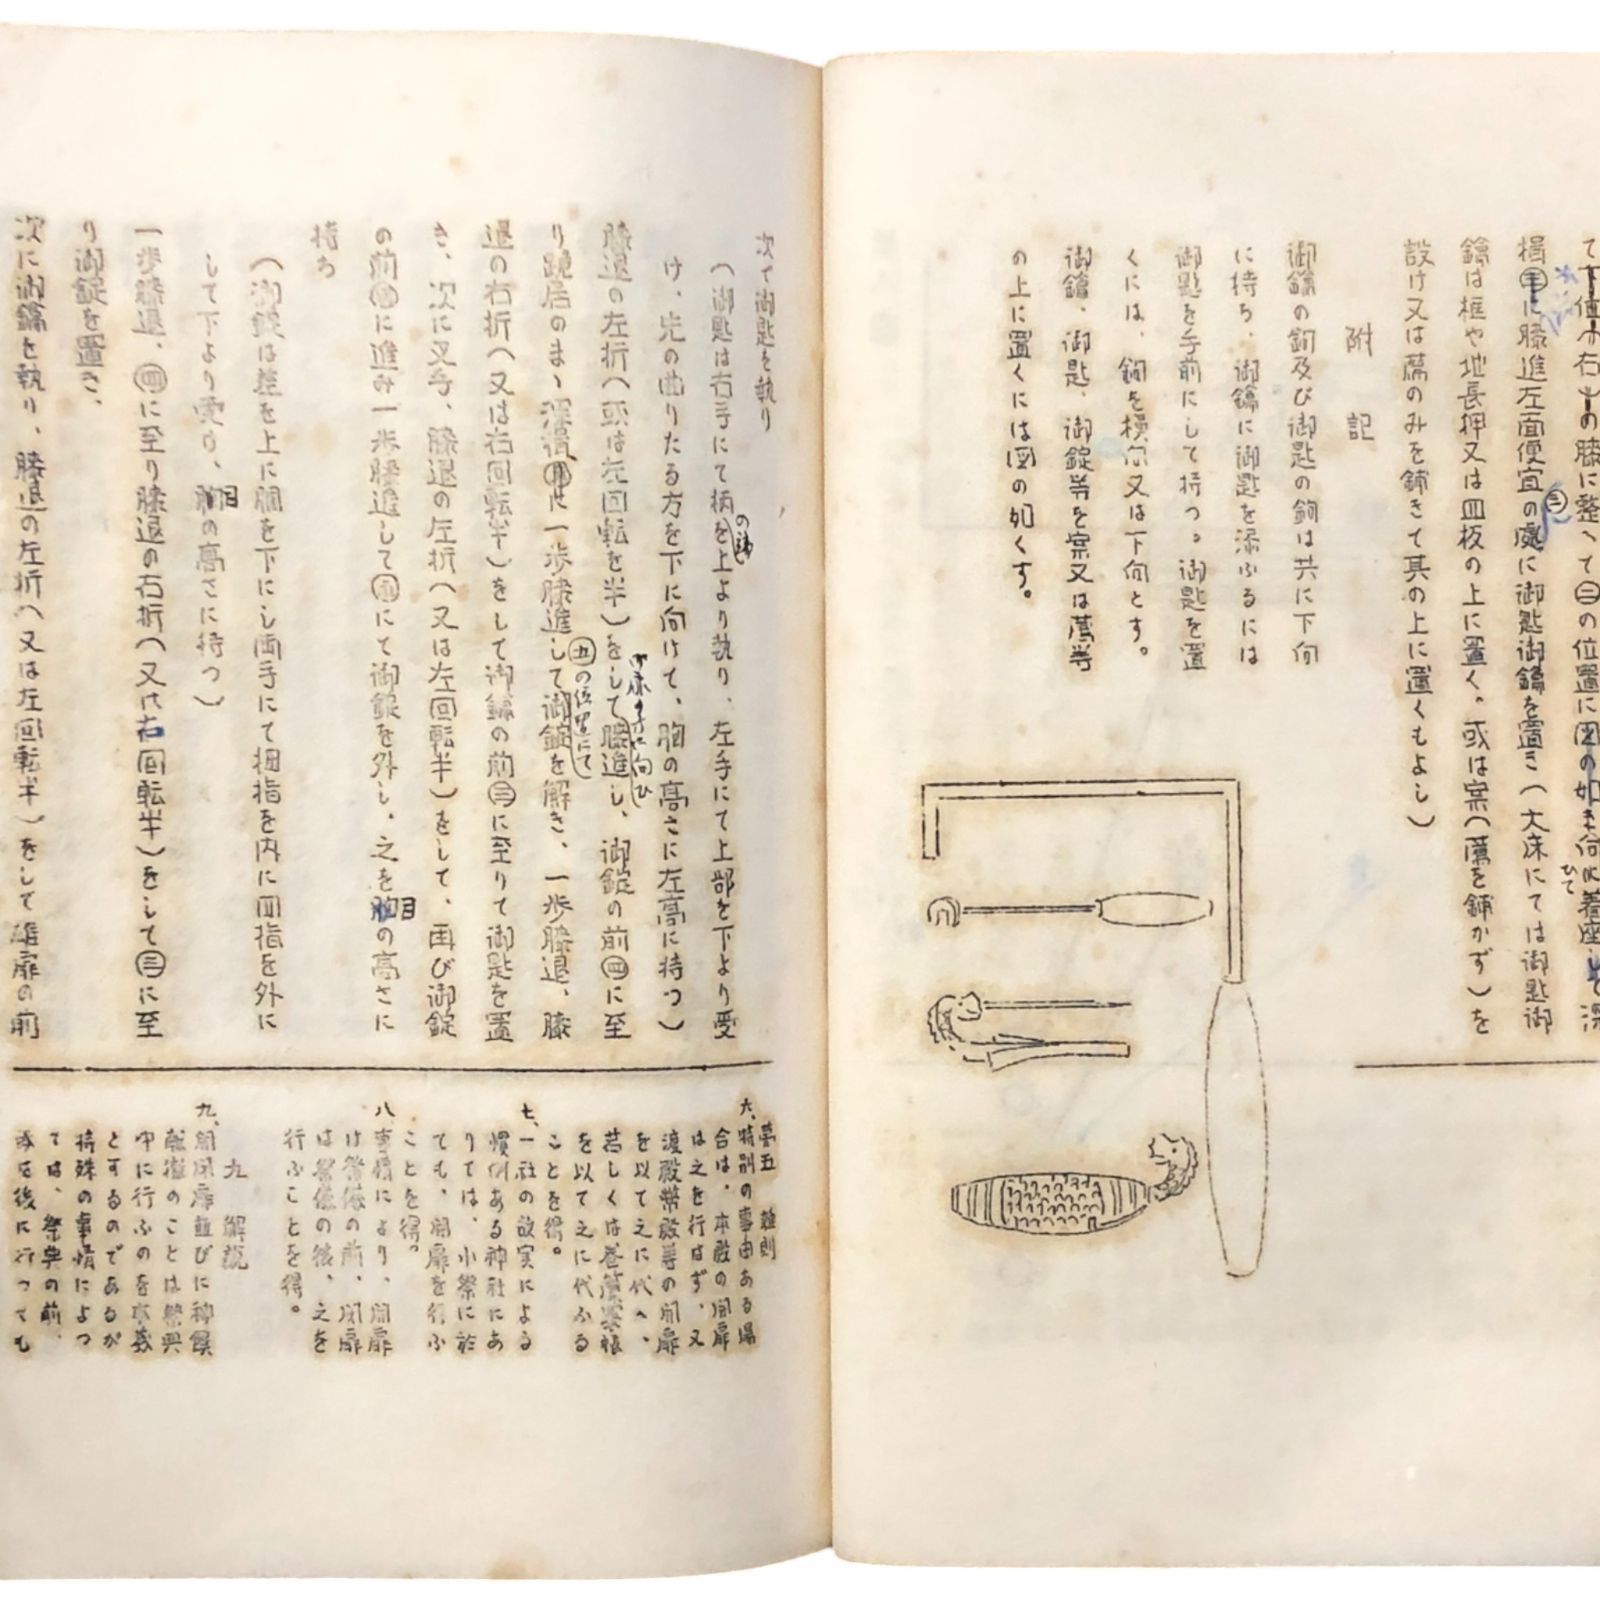 揖㊂に膝進左面便宜の處に御匙御鑰を置き（大床にては御匙御
鑰は框や地長押又は皿板の上に置く。或は案（薦を鋪かず）を
設け又は薦のみを鋪きて其の上に置くもよし）
附記
御鑰の鉤及び御匙の鉤は共に下向
に持ち、御鑰に御匙を添ふるには
御匙を手前にして持つ。御匙を置
くには、鉤を横向又は下向とす。
御鑰、御匙、御錠等を案又は薦等
の上に置くには図の如くす。
次で御匙を執り
（御匙は右手にて柄を上より執り、左手にて上部を下より受
け、先の曲りたる方を下に向けて、胸の高さに左高に持つ）
膝退の左折（或は左回転を半）をして膝進し、御錠の前㊃に至
り跪居のまゝ深揖㊄に一歩膝進して御錠を解き、一歩膝退、膝
㊄の位置にて
退の右折（又は右回転半）をして御鑰の前㊂に至りて御匙を置
き、次に叉手、膝退の左折（又は左回転半）をして、再び御錠
の前㊃に進み一歩膝進して㊄にて御錠を外し、之を胸の高さに
持ち
（御錠は差を上に胴を下にし両手にて拇指を内に四指を外に
して下より受け、胸の高さに持つ）
一歩膝退、㊃に至り膝退の右折（又は右回転半）をして㊂に至
り御錠を置き、
次に御鑰を執り、膝退の左折（又は左回転半）をして雄扉の前
第五 雑則
六、特別の事由ある場
合は、本殿の開扉
は之を行はず、又
渡殿幣殿等の開扉
を以て之に代へ、
若しくは巻簾褰帳
を以て之に代ふる
ことを得。
七、一社の故実による
慣例ある神社にあ
りては、小祭に於
ても、開扉を行ふ
ことを得。
八、事情により、開扉
は祭儀の前、閉扉
は祭儀の後、之を
行ふことを得。
九 解説
九、開閉扉並びに神饌
献撤のことは祭典
中に行ふのを本義
とするのであるが
特殊の事情によつ
ては、祭典の前、
亦は後に行つても